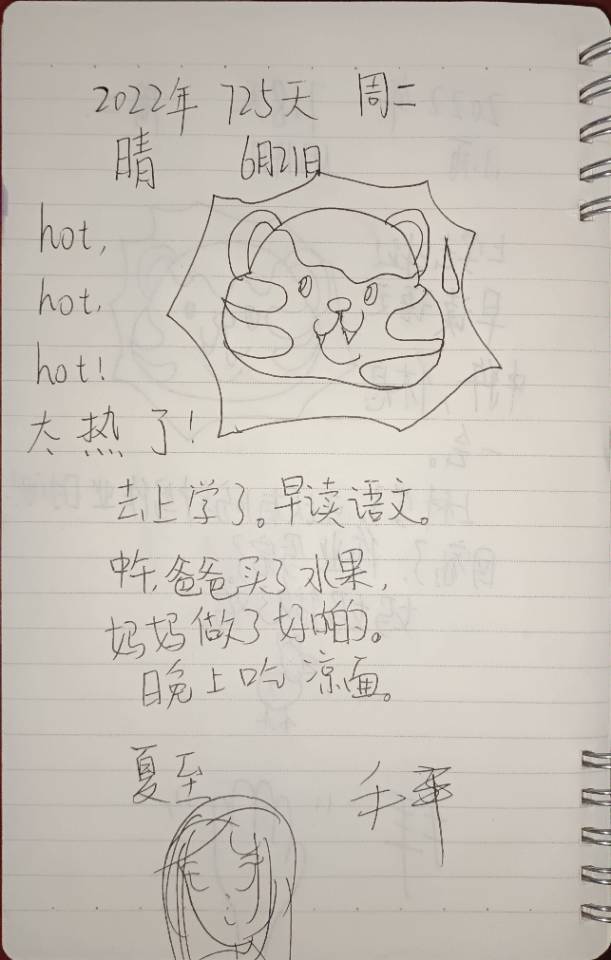 2022年 725天 周二
晴 6月21日
hot,
hot,
hot!
太热了!
去上学了。早读语文。
中午,爸爸买了水果,
妈妈做了好吃的。
晚上吃凉面。
夏至